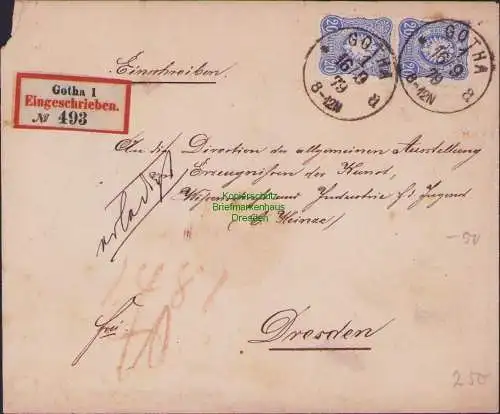 20 20
GOTHA
1
16 9
79
8-12N
a
GOTHA
1
16 9
79
8-12N
a
Einschreiben.
Gotha 1
Eingeschrieben.
№ 493
An die Direction der allgemeinen Ausstellung
Erzeugnissen der Kunst,
Wissenschaft und Industrie f. d. Jugend
Heinze
Kopierschutz
Briefmarkenhaus
Dresden
erledigt
50
frei.
Dresden
2 50